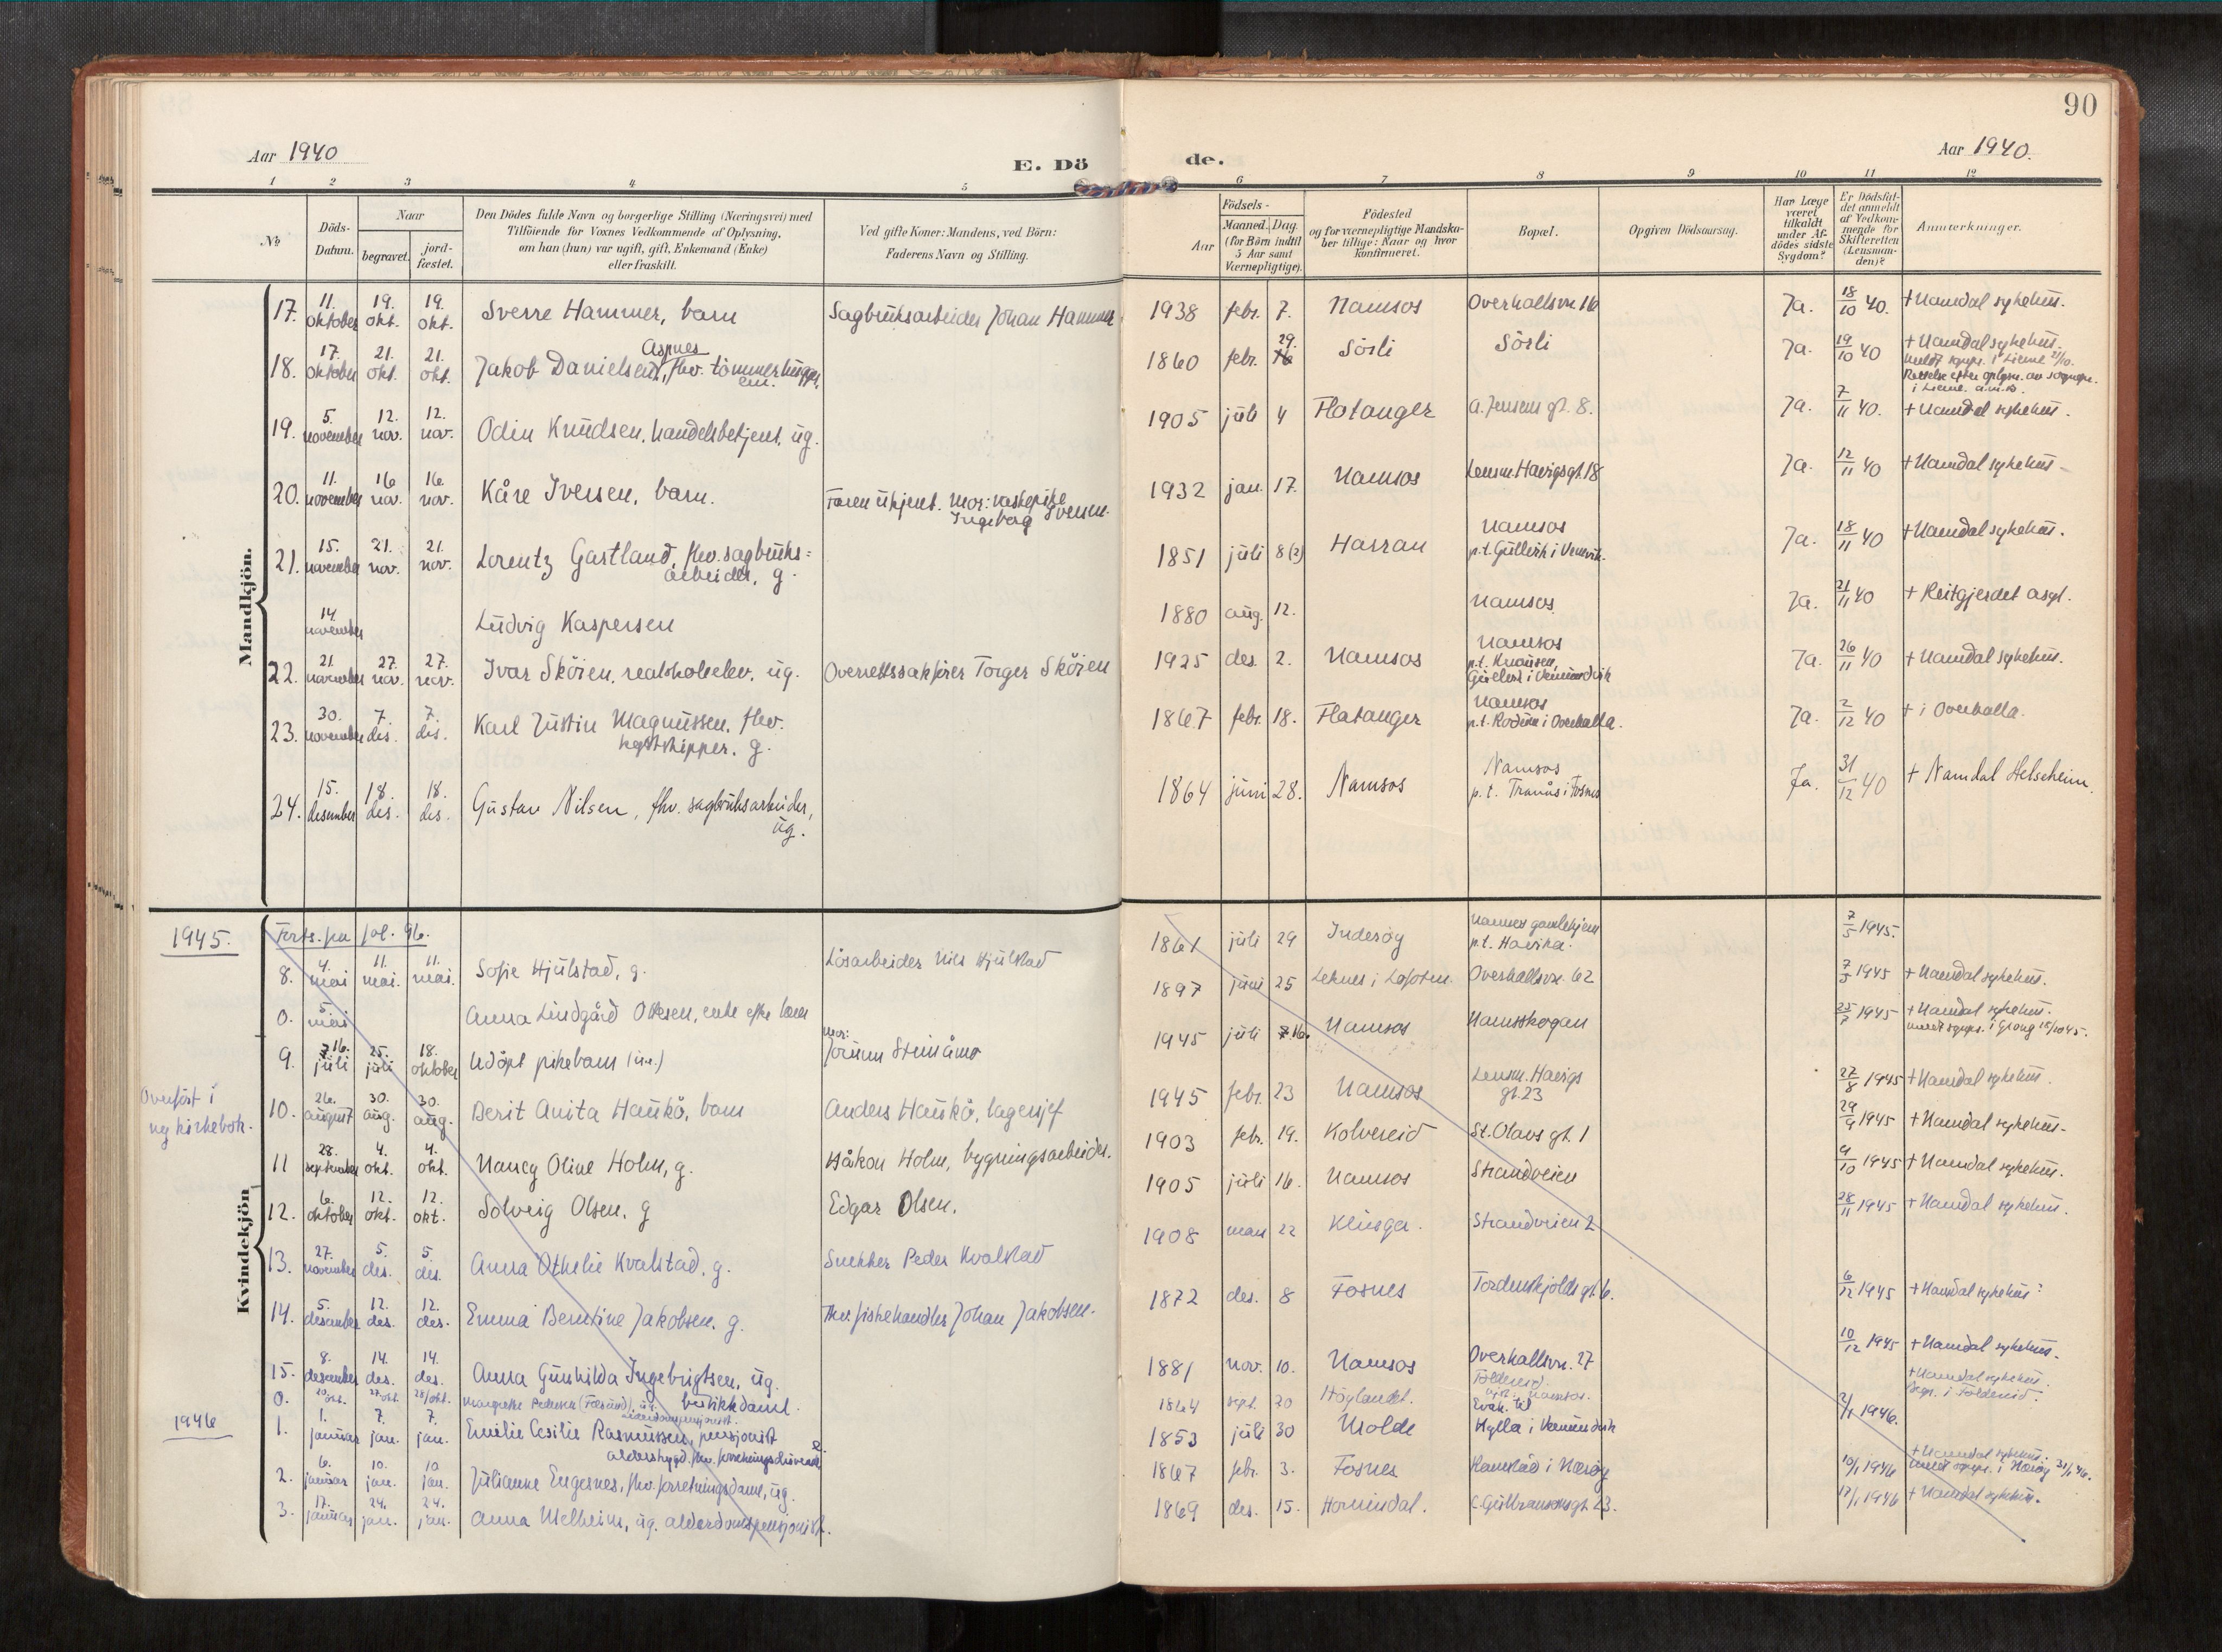 90
Aar 1940
E. Dö
de.
Aar 1940.
1 2 3 4 5
6 7 8 9 10 11 12
№
Döds-
Datum.
Naar
begravet.
jord-
fæstet.
Den Dödes fulde Navn og borgerlige Stilling (Næringsvei) med
Tilföiende for Voxnes Vedkommende af Oplysning,
om han (hun) var ugift, gift, Enkemand (Enke)
eller fraskilt.
Ved gifte Koner: Mandens, ved Börn:
Faderens Navn og Stilling.
Födsels-
Aar
Maaned. Dag.
(for Börn indtil
5 Aar samt
Værnepligtige).
Födested
og for værnepligtige Mandska-
ber tillige: Naar og hvor
konfirmeret.
Bopæl.
Opgiven Dödsaarsag.
Har Læge
været
tilkaldt
under Af-
dödes sidste
Sygdom?
Er Dödsfal-
det anmeldt
af Vedkom-
mende for
Skifteretten
(Lensman-
den)?
Anmærkninger.
Mandkjön.
17. 11. oktober 19. okt. 19. okt. Sverre Hammer, barn Sagbruksarbeider Johan Hammer 1938 febr. 7. Namsos Overhallsvn 16 Ja. 18/10 40. + Namdal sykehus.
18. 17. oktober 21. okt. 21. okt. Jakob Danielsen Aspnes, fhv. tömmerhugger, em. 1860 febr. 29. Sörli Sörli Ja. 19/10 40 + Namdal sykehus.
19. 5. november 12. nov. 12. nov. Odin Knudsen, handelsbetjent, ug. 1905 juli 4 Flatanger A. Jensens gt. 8. Ja. 7/11 40. + Namdal sykehus.
20. 11. november 16 nov. 16. nov. Kåre Iversen, barn. Faren ukjent. Mor: vaskepike
Ingeborg Iversen. 1932 jan. 17. Namsos Lensm. Havigs gt. 18 Ja. 12/11 40 + Namdal sykehus.
21. 15. november 21. nov. 21. nov. Lorentz Gastland, fhv. sagbruks-
arbeider, g. 1851 juli 8 (?) Harran Namsos
p.t. Gullvik i Vemundvik. Ja. 18/11 40 + Namdal sykehus.
14. november Ludvig Kaspersen 1880 aug. 12. Namsos Ja. 21/11 40 + Reitgjerdet asyl.
22. 21. november 27. nov. 27. nov. Ivar Sköien, realskoleelev, ug. Overrettssakförer Torger Sköien 1925 des. 2. Namsos Namsos
p.t. Knausen,
i Vemundvik Ja. 26/11 40 + Namdal sykehus.
23. 30. november 7. des. 7. des. Karl Justin Magnussen, fhv.
skipper. g. 1867 febr. 18. Flatanger Namsos
p.t. i Overhalla. Ja. 2/12 40 + i Overhalla.
24. 15. desember 18. des. 18. des. Gustav Nilsen, fhv. sagbruksarbeider,
ug. 1864 juni 28. Namsos Namsos
p.t. Tranås i Fosnes Ja. 31/12 40 + Namdal Helseheim.
Kvindekjön
1945. Forts. fra fol. 96.
8. 4. mai 11. mai. 11. mai. Sofie Hjulstad, g. Lösarbeider Nils Hjulstad 1861 juli 29 Inderöy Namsos gamlehjem
p.t. Havika. 7/5 1945.
0. 5. mai Anna Lindgård Ottesen, enke efter 1897 juni 25 Leknes i Lofoten Overhallsvn. 62 7/5 1945 + Namdal sykehus.
9. 16. juli 25. juli 18. oktober Udöpt pikebarn (u.e.) mor:
Jorunn Steinåmo 1945 juli 16. Namsos Namsskogan 25/7 1945 + Namdal sykehus.
Meldt sogpr. i Grong 18/10 45.
Overfört i
ny kirkebok.
10. 26. august 30. aug. 30. aug. Berit Anita Haukö, barn Anders Haukö, lagersjef 1945 febr. 23 Namsos Lensm. Havigs
gt. 23 27/8 1945 + Namdal sykehus.
11 28. september 4. okt. 4. okt. Nancy Oline Holm, g. Håkon Holm, bygningsarbeider. 1903 febr. 19. Kolvereid St. Olavs gt. 1 29/9 1945 + Namdal sykehus.
12. 6. oktober 12. okt. 12. okt. Solveig Olsen, g Edgar Olsen. 1905 juli 16. Namsos Strandveien 9/10 1945 + Namdal sykehus.
13. 27. november 5. des. 5. des. Anna Othelie Kvalstad, g. Snekker Peder Kvalstad 1908 mars 22 Klinga. Strandveien 2 28/11 1945 + Namdal sykehus.
14. 5. desember 12. des. 12. des. Emma Berntine Jakobsen, g. Fhv. fiskehandler Johan Jakobsen. 1872 des. 8 Fosnes Tordenskjolds gt. 6. 6/12 1945 + Namdal sykehus
15. 8. desember 14. des. 14. des. Anna Gunhilda Ingebrigtsen, ug.
butikkdame. 1881 nov. 10. Namsos Overhallsvn. 27 10/12 1945 + Namdal sykehus.
0. 20 okt. 28/okt. Margrethe Pedersen 1864 sept. 20 Höylandet. Foldereid. + Namdal sykehus.
i Foldereid.
1946
1. 1. januar 7. jan. 7. jan. Emilie Cesilie Rasmussen, pensjonist 1853 juli 30 Molde Hylla i Vemundvik 2/1 1946.
2. 6. januar 10. jan. 10 jan. Julianne Engesnes, fhv. forretningsdame, ug. 1867 febr. 3. Fosnes Ramstad i Næröy 10/1 1946 + Namdal sykehus.
Meldt sogpr. i Næröy 21/1 46.
3. 17. januar 24. jan. 24. jan. Anna Melheim, ug. alderdomspensjonist. 1869 des. 15. Hornindal. C. Gulbransonsgt. 23. 17/1 1946 + Namdal sykehus.